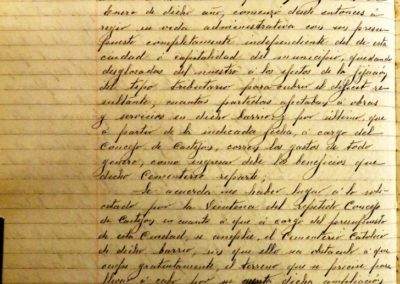 Enero de dicho año, comenzó desde entonces á
regir su vida administrativa con su presu-
puesto completamente independiente del de esta
ciudad ó capitalidad del municipio, quedando
desglosadas del nuestro á los efectos de la fijación
del tipo tributario para cubrir el déficit re-
sultante, cuantas partidas afectaban á obras
y servicios en dicho barrio; y por último que
á partir de la indicada fecha, á cargo del
Concejo de Castejón, corren los gastos de todo
genero, como ingresar debe los beneficios que
dicho Cementerio reparte;
Se acuerda no haber lugar á lo soli-
citado por la Veintena del repetido Concejo
de Castejón en cuanto á que á cargo del presupuesto
de esta Ciudad, se amplíe el Cementerio Católico
de dicho barrio, sin que ello sea obstáculo á que
ceda gratuitamente, el terreno que se precise para
llevar á cabo por su cuenta dicha ampliación